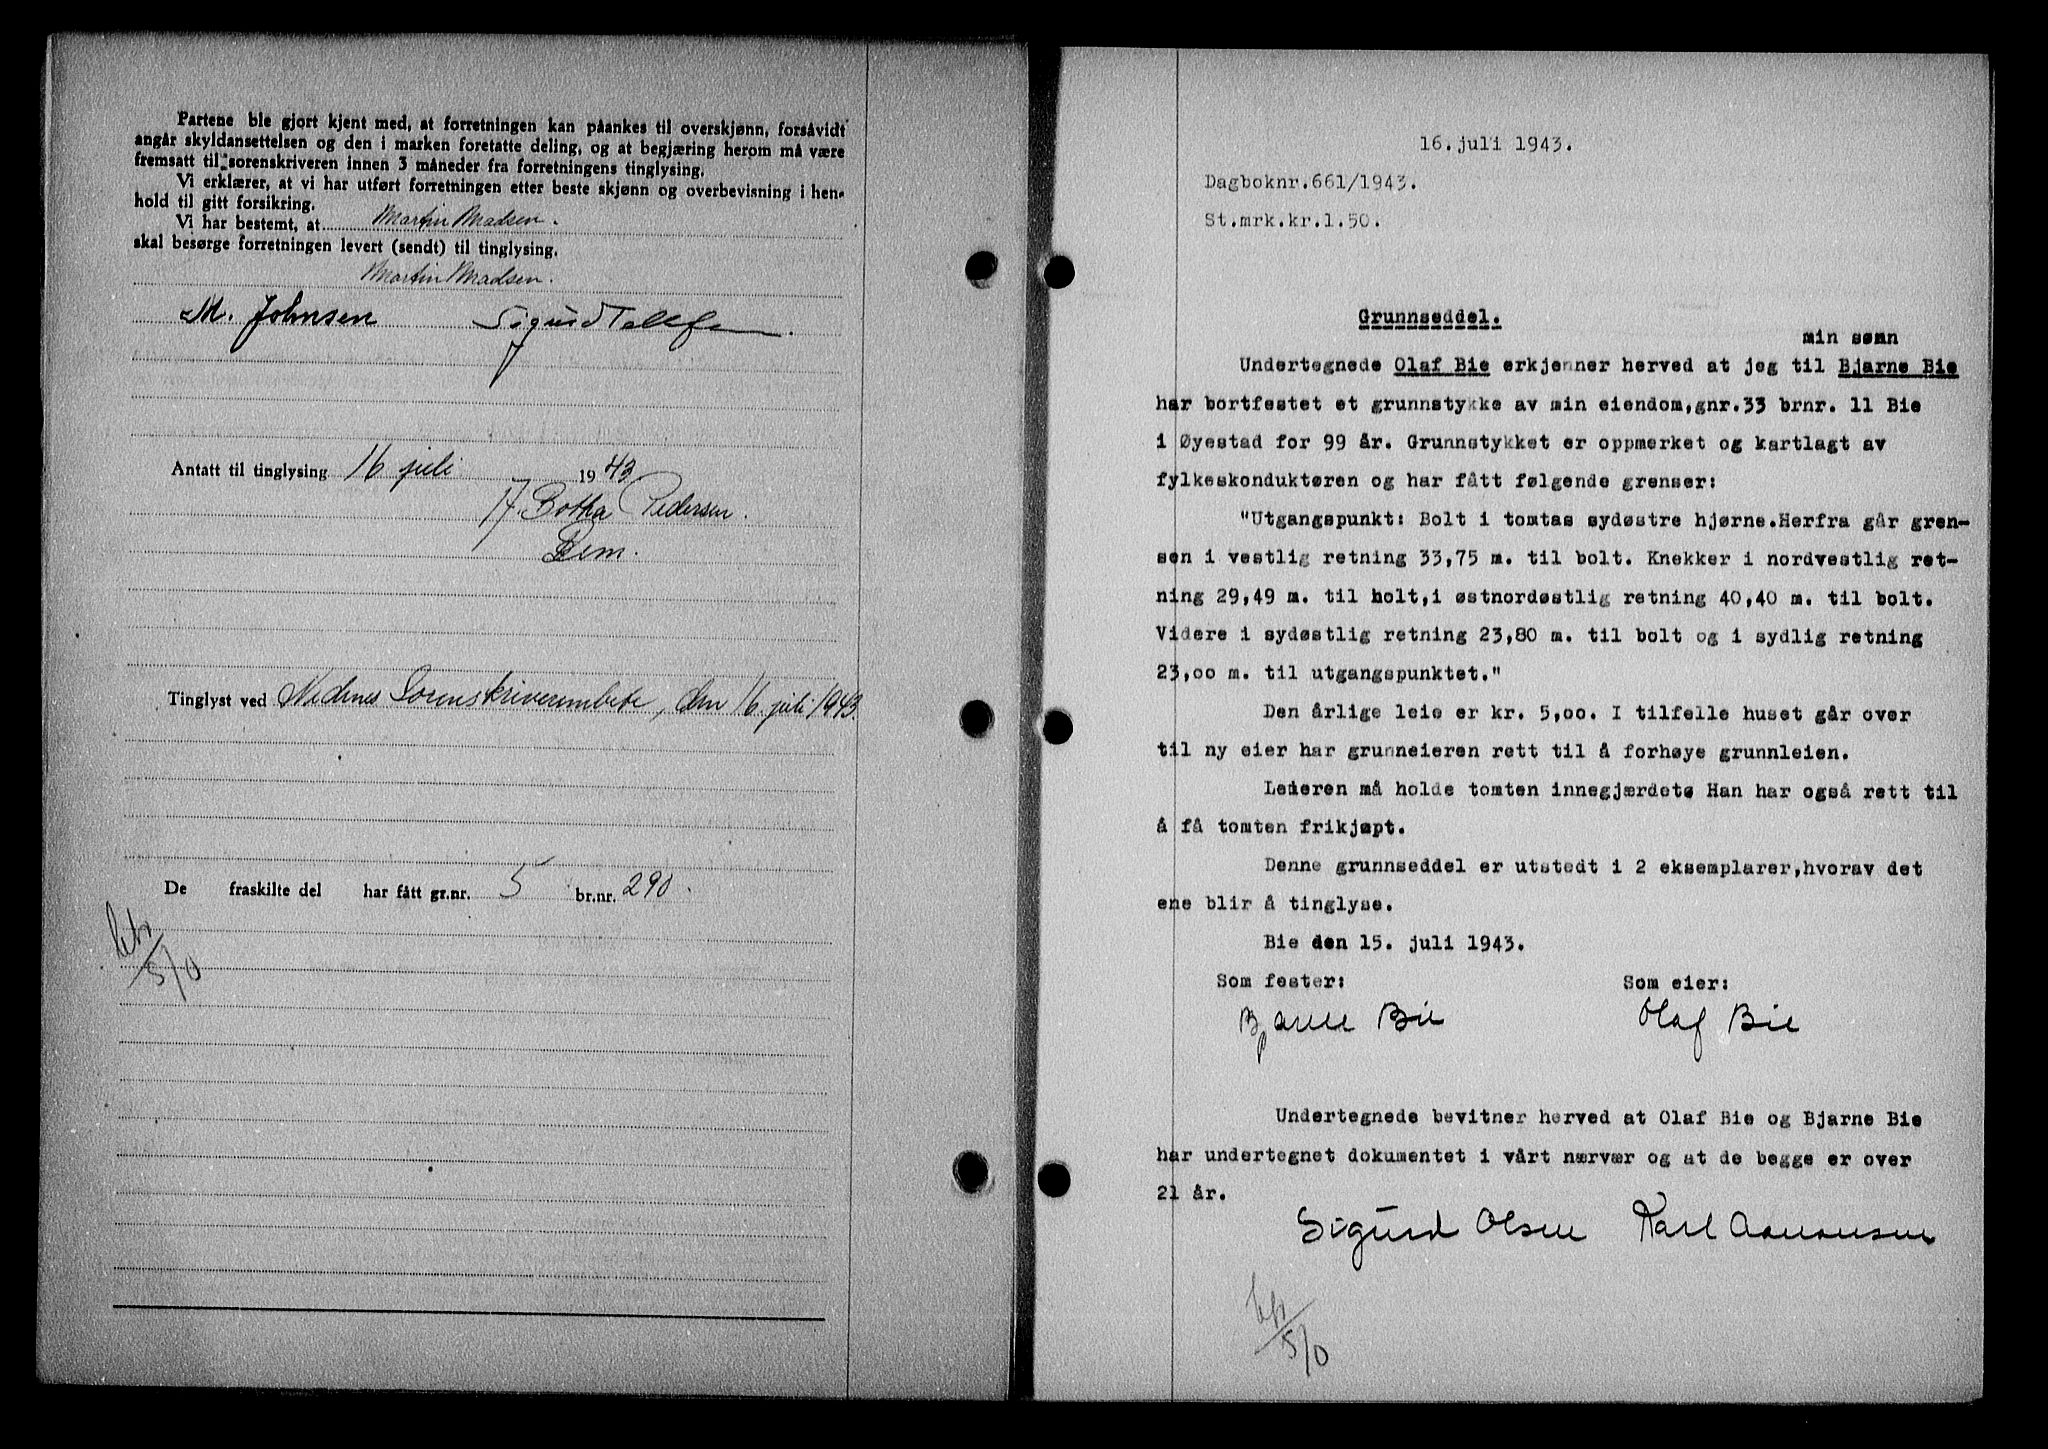 Partene ble gjort kjent med, at forretningen kan påankes til overskjønn, forsåvidt
angår skyldansettelsen og den i marken foretatte deling, og at begjæring herom må være
fremsatt til sorenskriveren innen 3 måneder fra forretningens tinglysing.
Vi erklærer, at vi har utført forretningen etter beste skjønn og overbevisning i hen-
hold til gitt forsikring.
Vi har bestemt, at Martin Madsen.
skal besørge forretningen levert (sendt) til tinglysing.
Martin Madsen.
M. Johnsen Sigurd Tellefsen.
Antatt til tinglysing 16 juli 1943
Botha Pedersen.
Tinglyst ved Nedenes Sorenskriverembete, den 16. juli 1943.
De fraskilte del har fått gr.nr. 5 br.nr. 290.
5/0
16.juli 1943.
Dagboknr.661/1943.
St.mrk.kr.1.50.
Grunnseddel.
min sønn
Undertegnede Olaf Bie erkjenner herved at jeg til Bjarne Bie
har bortfestet et grunnstykke av min eiendom,gnr.33 brnr. 11 Bie
i Øyestad for 99 år. Grunnstykket er oppmerket og kartlagt av
fylkeskonduktøren og har fått følgende grenser:
"Utgangspunkt: Bolt i tomtas sydøstre hjørne.Herfra går gren-
sen i vestlig retning 33,75 m. til bolt. Knekker i nordvestlig ret-
ning 29,49 m. til holt,i østnordøstlig retning 40,40 m. til bolt.
Videre i sydøstlig retning 23,80 m. til bolt og i sydlig retning
23,00 m. til utgangspunktet."
Den årlige leie er kr. 5,00. I tilfelle huset går over
til ny eier har grunneieren rett til å forhøye grunnleien.
Leieren må holde tomten innegjærdet. Han har også rett til
å få tomten frikjøpt.
Denne grunnseddel er utstedt i 2 eksemplarer,hvorav det
ene blir å tinglyse.
Bie den 15. juli 1943.
Som fester: Som eier:
Bjarne Bie Olaf Bie
Undertegnede bevitner herved at Olaf Bie og Bjarne Bie
har undertegnet dokumentet i vårt nærvær og at de begge er over
21 år.
Sigurd Olsen Karl Aamonsen
5/0